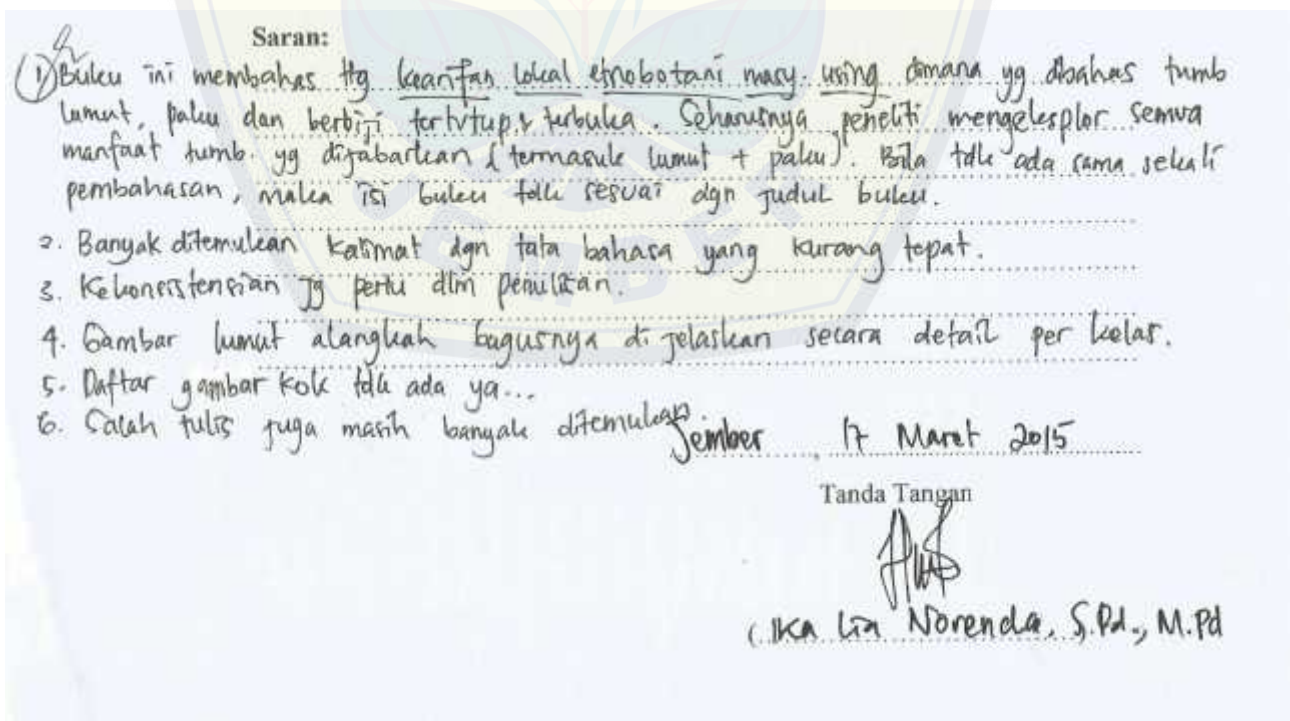 Saran:
1) Buku ini membahas ttg kearifan lokal etnobotani masy. using dimana yg dbahas tumb
lumut, paku dan berbiji tertutup & terbuka. Seharusnya peneliti mengeksplor semua
manfaat tumb. yg dijabarkan (termasuk lumut + paku). Bila tdk ada sama sekali
pembahasan, maka isi buku tdk sesuai dgn judul buku.
2. Banyak ditemukan kalimat dgn tata bahasa yang kurang tepat.
3. Kekonsistensian jg perlu dlm penulisan.
4. Gambar lumut alangkah bagusnya di jelaskan secara detail per kelas.
5. Daftar gambar kok tdk ada ya...
6. Salah tulis juga masih banyak ditemukan.
Jember, 17 Maret 2015
Tanda Tangan
(Ika Lia Norenda, S.Pd., M.Pd